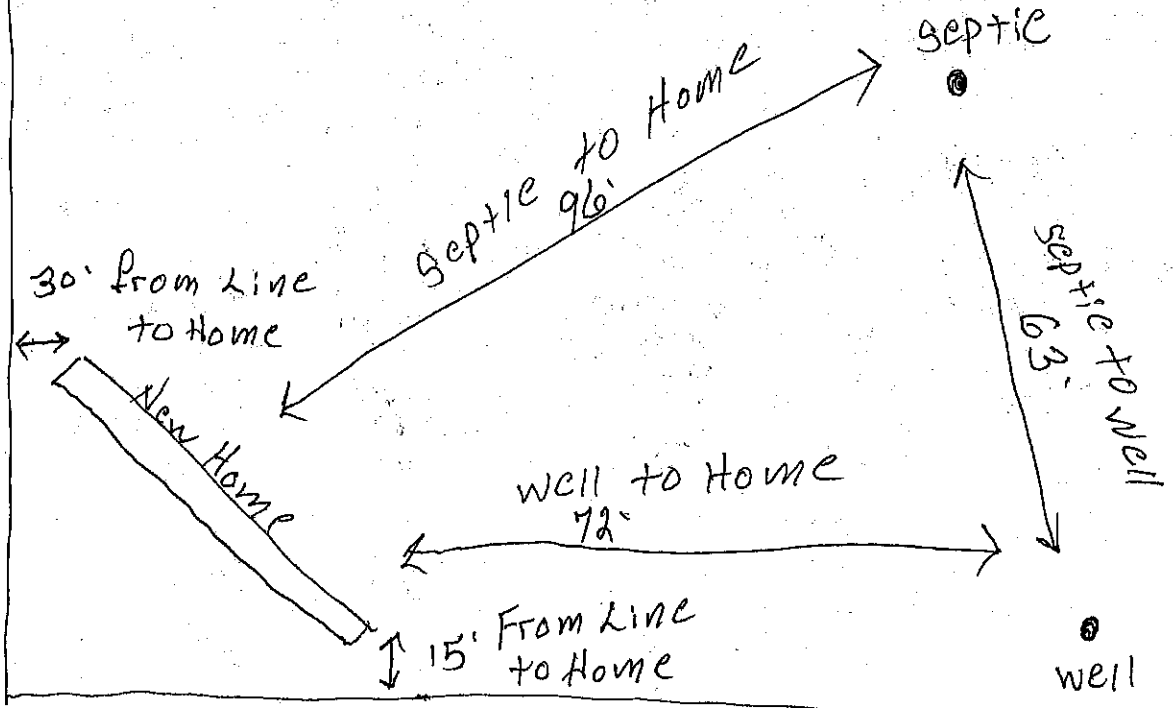 septic
septic to Home
96'
30' from Line
to Home
septic to well
63'
New Home
well to Home
72'
15' From Line
to Home
well